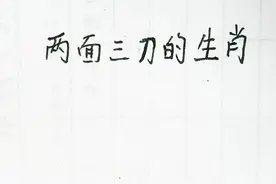 两面三刀的生肖